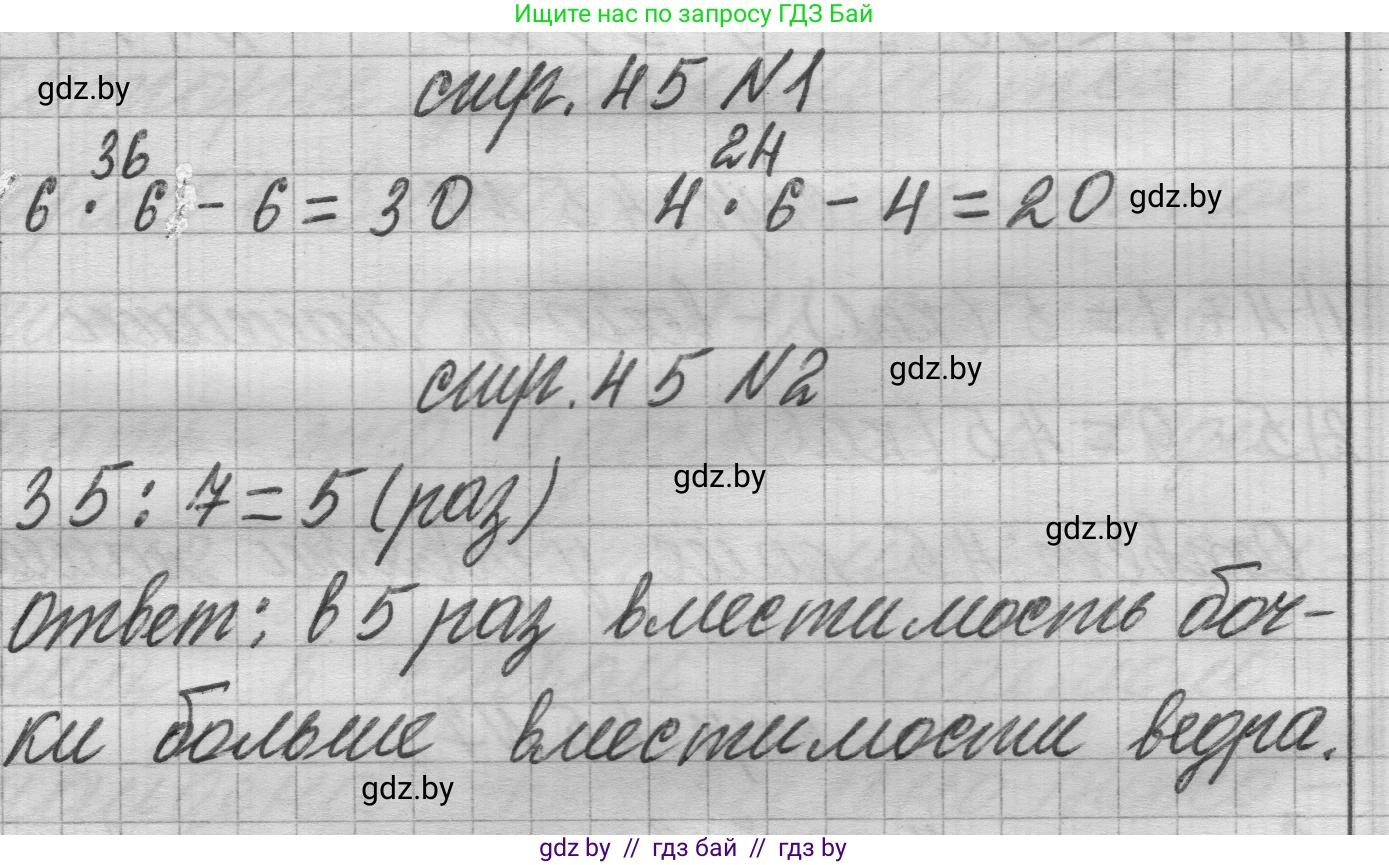 Ищите нас по запросу ГДЗ Бай
gdz.by
стр. 45 N1
36
6 · 6 - 6 = 30
24
4 · 6 - 4 = 20
gdz.by
стр. 45 N2
gdz.by
35 : 7 = 5 (раз)
gdz.by
gdz.by
Ответ: в 5 раз вместимость боч-
ки больше вместимости ведра.
gdz.by
gdz by // гдз бай // гдз by